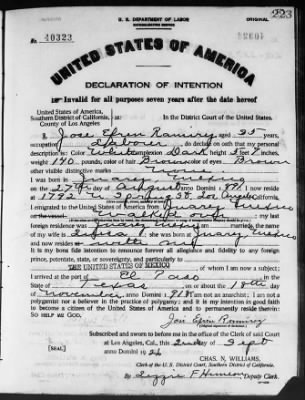 223
U. S. DEPARTMENT OF LABOR
NATURALIZATION SERVICE
ORIGINAL
No. 40323
UNITED STATES OF AMERICA
DECLARATION OF INTENTION
Invalid for all purposes seven years after the date hereof
United States of America,
Southern District of California, ss:
County of Los Angeles
In the District Court of the United States.
I, Jose Efren Ramirez, aged 25 years,
occupation Laborer, do declare on oath that my personal
description is: Color White, complexion Dark, height 5 feet inches,
weight 140 pounds, color of hair Brown, color of eyes Brown
other visible distinctive marks none
I was born in Juarez Mexico
on the 27th day of August, anno Domini 1; I now reside
at St. Los Angeles California.
I emigrated to the United States of America from Juarez Mexico
on the vessel walked over; my last
foreign residence was Juarez Mexico; I am married; the name
of my wife is; she was born at Juarez Mexico
and now resides at with me
It is my bona fide intention to renounce forever all allegiance and fidelity to any foreign
prince, potentate, state, or sovereignty, and particularly to
THE UNITED STATES OF MEXICO, of whom I am now a subject;
I arrived at the port of El Paso, in the
State of Texas, on or about the 18th day
of November, anno Domini 1918; I am not an anarchist; I am not a
polygamist nor a believer in the practice of polygamy; and it is my intention in good faith
to become a citizen of the United States of America and to permanently reside therein:
SO HELP ME GOD.
Jose Efren Ramirez
Subscribed and sworn to before me in the office of the Clerk of said Court
at Los Angeles, Cal., this 2nd day of Sept
anno Domini 1926
[SEAL]
CHAS. N. WILLIAMS,
Clerk of the U. S. District Court, Southern District of California.
By, Deputy Clerk.